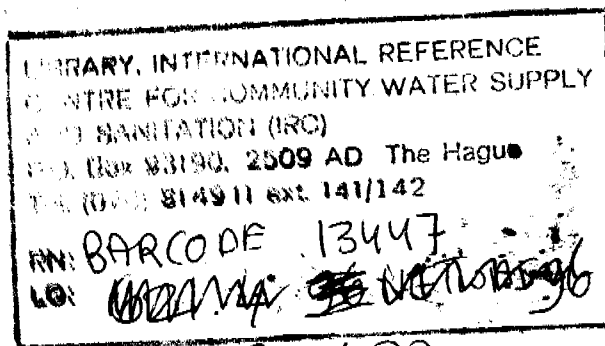 LIBRARY, INTERNATIONAL REFERENCE
CENTRE FOR COMMUNITY WATER SUPPLY
AND SANITATION (IRC)
P.O. Box 93190, 2509 AD The Hague
Tel. (070) 814911 ext. 141/142
RN: BARCODE 13447
LO: